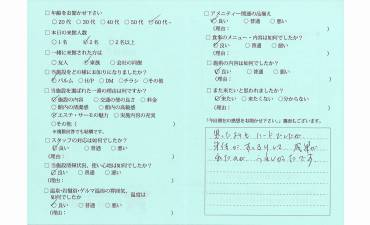 □年齢をお聞かせ下さい
□20代 □30代 □40代 □50代 ☑60代~
□本日の来館人数
□1名 ☑2名 □2名以上
□一緒に来館された方は
□友人 ☑家族 □会社の同僚
□当施設をどの様にお知りになりましたか?
☑パルム □H/P □DM □チラシ □その他
□当施設を選ばれた一番の理由は何ですか?
☑施設の内容 □交通の便の良さ □料金
□館内の清潔感 □館内の高級感
☑エステ・サーモの魅力 □実績
□その他( )
※複数回答でも結構です。
□スタッフの対応は如何でしたか?
☑良い □普通 □悪い
(理由: )
□当施設の環境状況、使い心地は如何でしたか?
☑良い □普通 □悪い
(理由: )
□温泉・岩盤浴・ゲルマ温浴の雰囲気、温度は
如何でしたか?
☑良い □普通 □悪い
(理由: )
□アメニティー関連の品揃え
☑良い □普通 □悪い
(理由: )
□食事のメニュー・内容は如何でしたか?
□良い □普通 □悪い
(理由: )
□施術の内容は如何でしたか?
☑良い □普通 □悪い
(理由: )
□また来たいと思われましたか?
☑来たい □来たくない □分からない
(理由: )
「今日御社の感想をお聞かせ下さい。」
思ったよりも ハードでしたが
うれしかったです